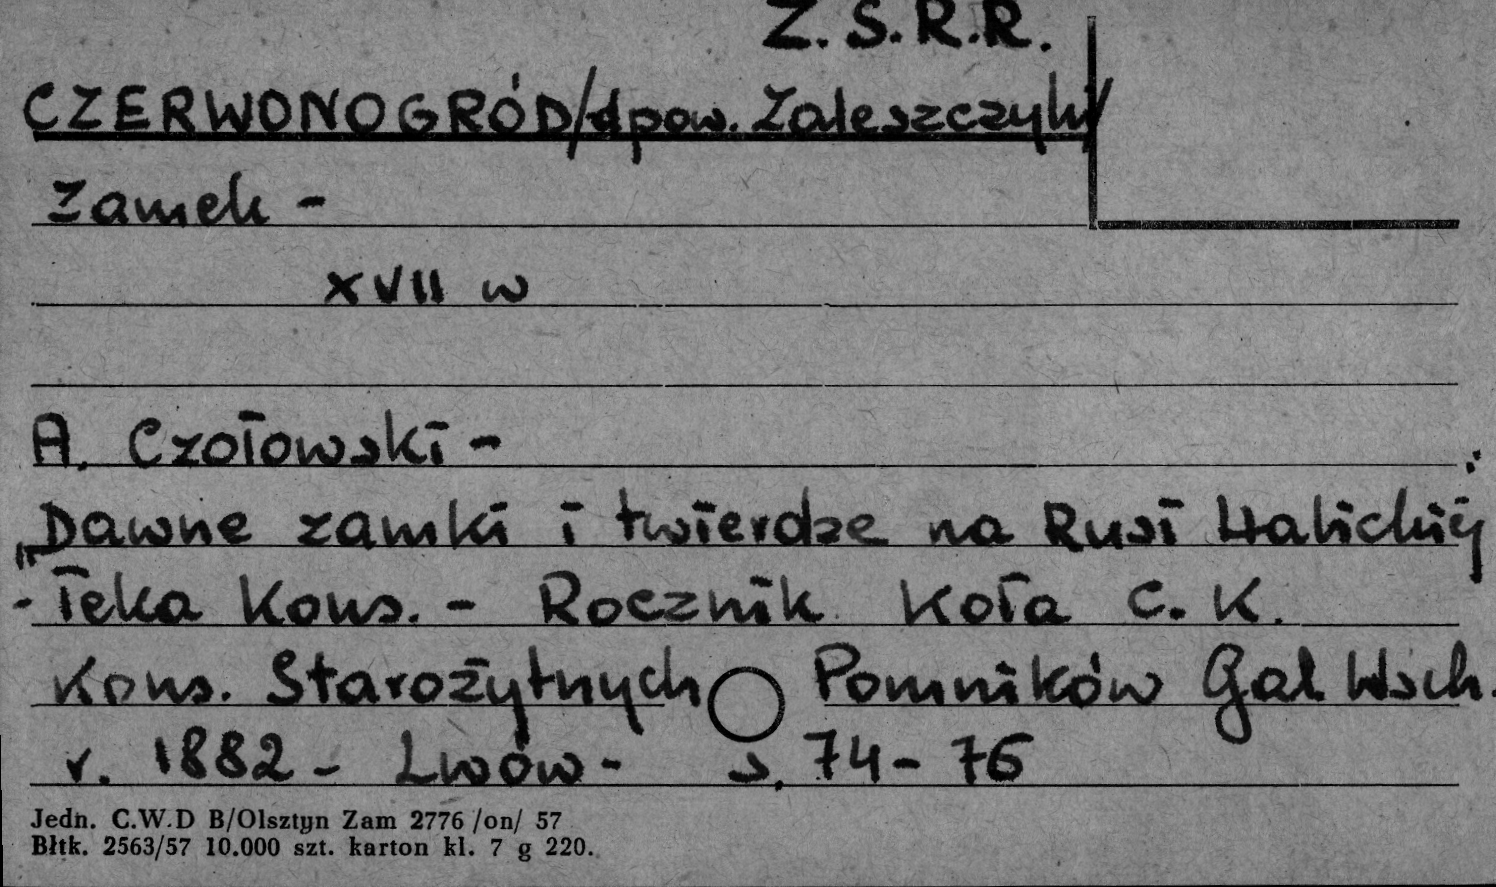 Z.S.R.R.
CZERWONOGRÓD/pow. Zaleszczyki/
Zamek -
XVII w
A. Czołowski -
"Dawne zamki i twierdze na Rusi Halickiej"
- Teka Kons. - Rocznik Koła C. K.
Kons. Starożytnych Pomników Gal Wsch.
r. 1882 - Lwów - s. 74 - 76
Jedn. C.W.D B/Olsztyn Zam 2776 /on/ 57
Błtk. 2563/57 10.000 szt. karton kl. 7 g 220.